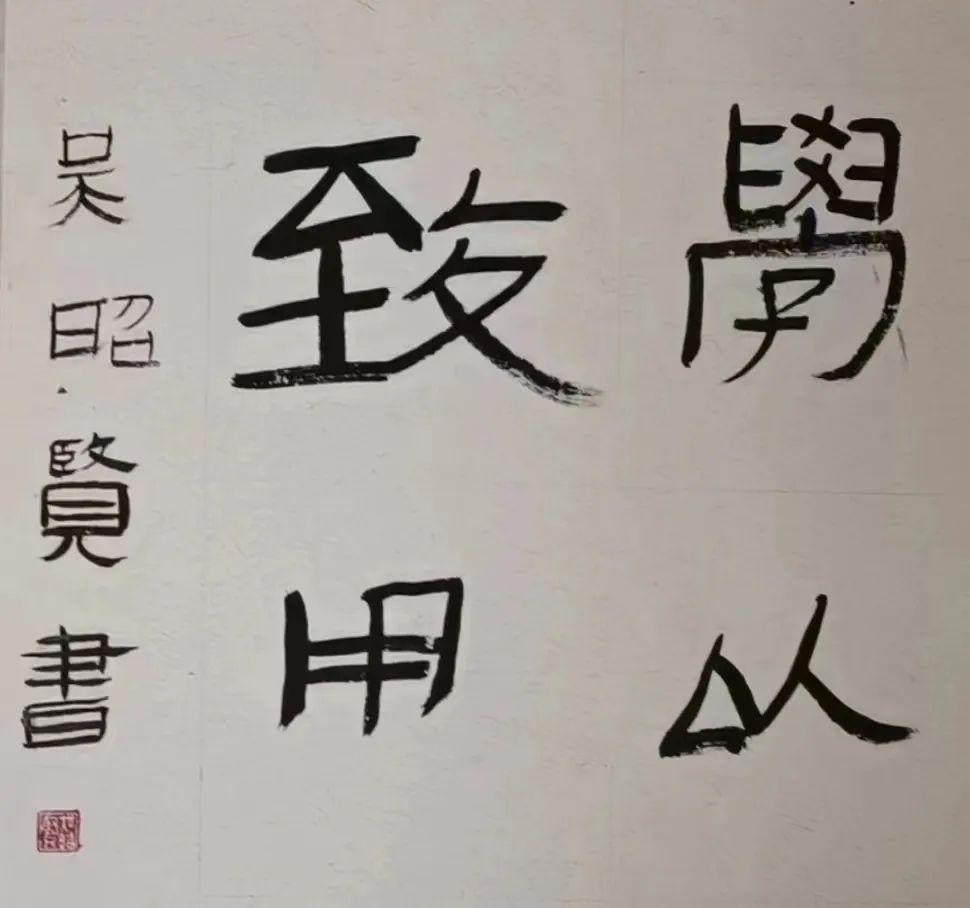 學以
致用
吴昭賢書